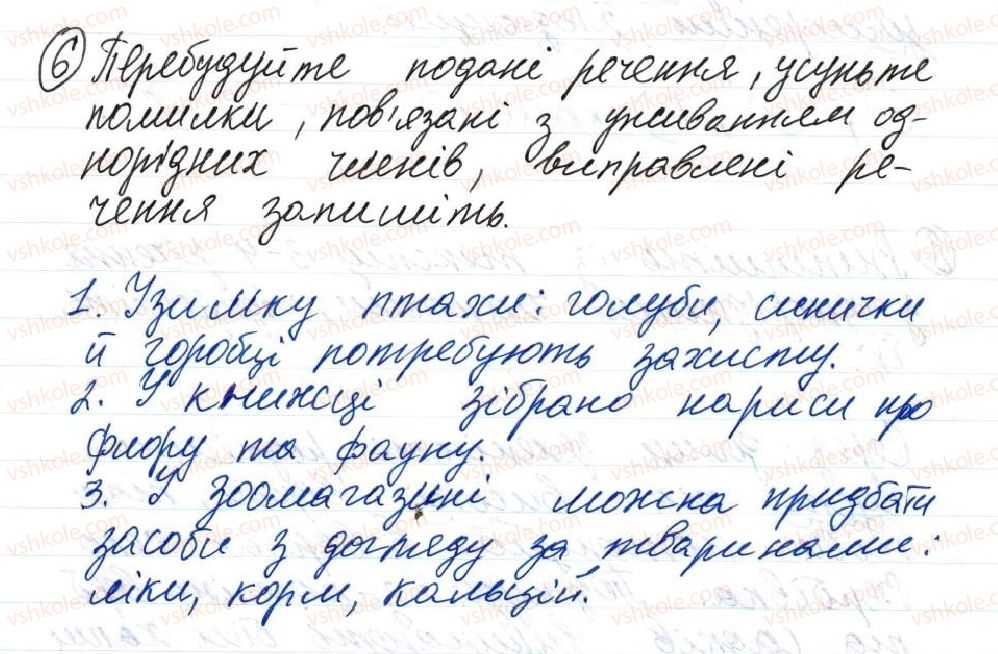 6 Перебудуйте подані речення, усуньте
помилки, пов'язані з уживанням од-
норідних членів, виправлені ре-
чення запишіть.
1. Узимку птахи: голуби, синички
й горобці потребують захисту.
2. У книжці зібрано нариси про
флору та фауну.
3. У зоомагазині можна придбати
засоби з догляду за тваринами:
ліки, корм, кальцій.
vshkole.com